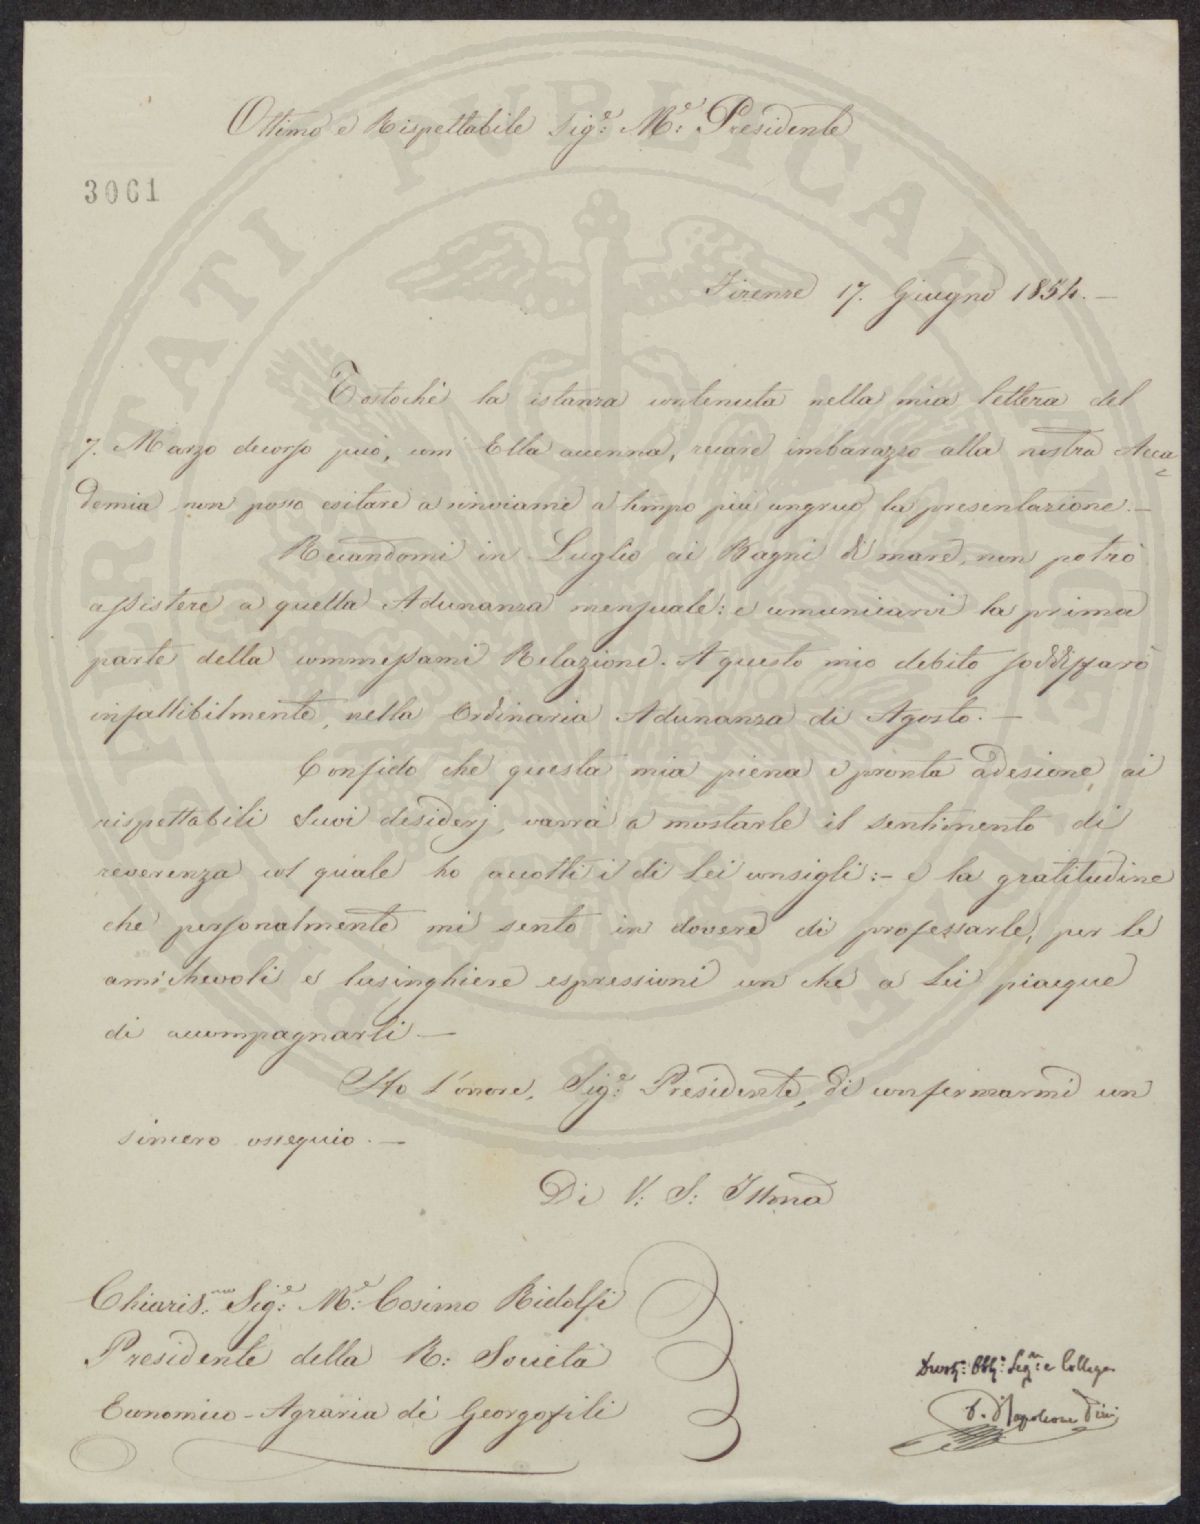 Ottimo e Rispettabile Sig.e M.e Presidente
3061
Firenze 17. Giugno 1854. —
Tostochè la istanza contenuta nella mia lettera del
7. Marzo decorso può, com' Ella accenna, recare imbarazzo alla nostra Acca-
demia non posso esitare a rinviarne a tempo più congruo la presentazione. —
Recandomi in Luglio ai Bagni di mare, non potrò
assistere a quella Adunanza mensuale: e comunicarvi la prima
parte della commessami Relazione. A questo mio debito soddisfarò
infallibilmente, nella Ordinaria Adunanza di Agosto. —
Confido che questa mia piena e pronta adesione ai
rispettabili Suoi desiderj, varrà a mostarle il sentimento di
reverenza col quale ho accolti i di Lei consigli: — e la gratitudine
che personalmente mi sento in dovere di professarle, per le
amichevoli e lusinghiere espressioni con che a Lei piacque
di accompagnarli —
Ho l'onore, Sig.e Presidente, di confermarmi con
sincero ossequio. —
Di V: S: Illma
Chiaris.mo Sig.e M.e Cosimo Ridolfi
Presidente della R: Società
Economico-Agraria di Georgofili
Devot.o Obb.o Collega
D. Napoleone Pini
PUBLICAE